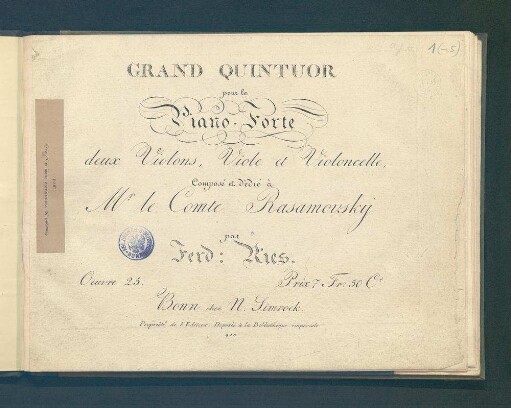 1(-5)
GRAND QUINTUOR
pour le
Piano-Forte
deux Violons, Viole et Violoncelle,
Composé et dédié à
Mr. le Comte Rasamovsky
par
Ferd: Ries.
Oeuvre 25. Prix 7 Fr: 50 Cs
Bonn chez N. Simrock.
Propriété de l'Editeur. Deposé à la Bibliothèque impériale